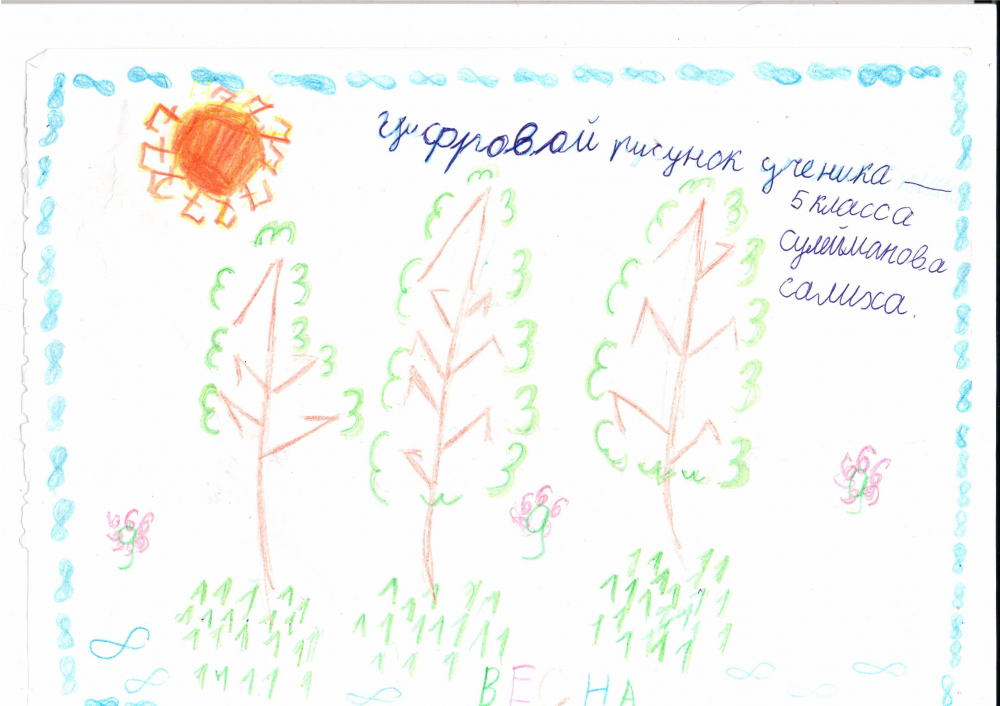 Цифровой рисунок ученика —
5 класса
сулейманова
салиха.
ВЕСНА